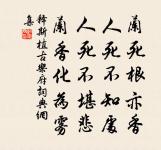 蘭死根亦香
人死不知處
人死不堪悲
蘭香化為霧
釋斯植古樂府詞典網
集